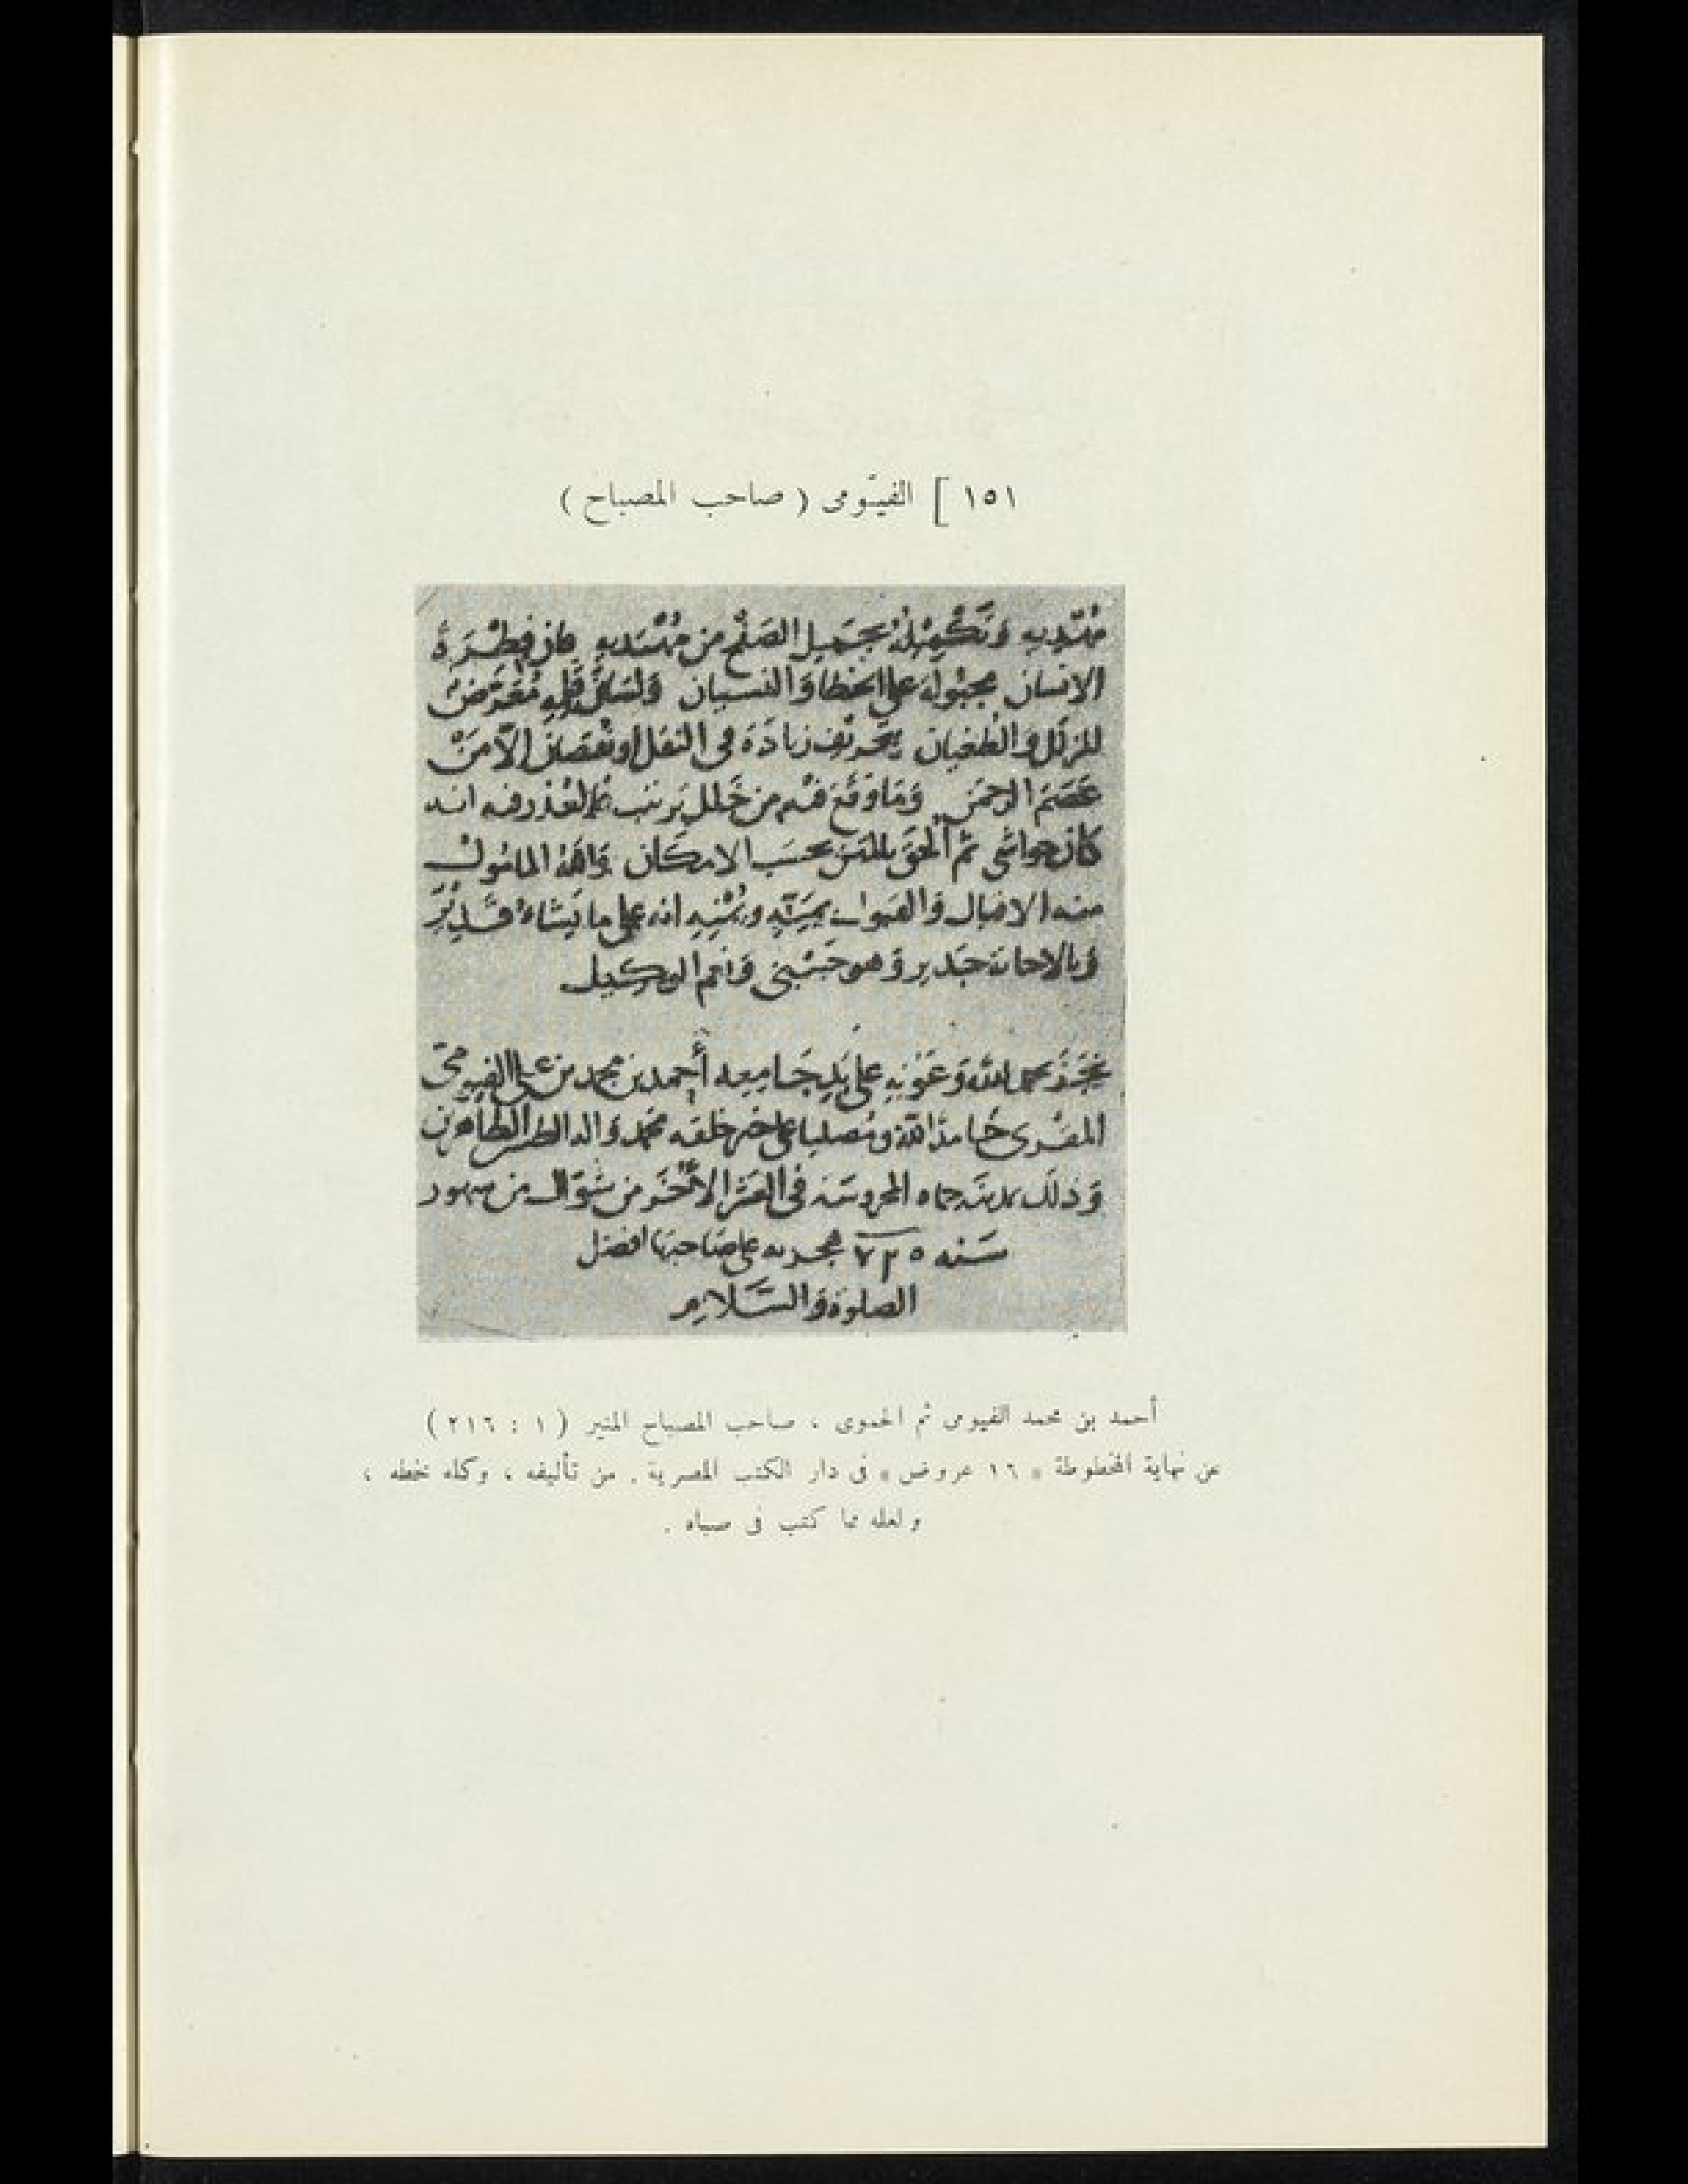 ١٥١ ] الفيّومى ( صاحب المصباح )
الصَفْح من
الانسان مجبُولَة على الخطا وَالنسيان وَلسَانُ قلمِهِ مُعَرَّضٌ
للزلَل والطُغيان بتَحْريف زيادَة فى النقل او نُقصَان الّا مَنْ
عَصَمَ الرحمَن وَمَا وَقَعَ فيْه من خَلل العُذر فيه انه
كان حواشى ثم أُلحقَ بالمتن بحسَب الامكان وَاللهُ المامُول
منه الاقبال وَالقبول بمَنِّهِ ويُمْنِهِ انه على ما يَشَاءُ قَدِيْر
وَبالاجابة جَدير وَهو حَسْبى وَنعم الوكيل
نَجَزَ بحمد الله وَعَوْنِهِ على يَدِ جَامِعه أحمد بن محمد بن على الفيومى
المقرى حَامدًا لله ومُصليا على خير خلقه محمد وَاله الطاهرين
وَذلك بمدينَة حماه المحروسَة فى العَشْر الأخَر من شَوّال من شهور
سَنه ٧٢٥ هجريه على صَاحبها افضل
الصلوة وَالسَّلام
أحمد بن محمد الفيومى ثم الحموى ، صاحب المصباح المنير ( ١ : ٢١٦ )
عن نهاية المخطوطة « ١٦ عروض » فى دار الكتب المصرية . من تأليفه ، وكله بخطه ،
ولعله مما كتب فى صباه .